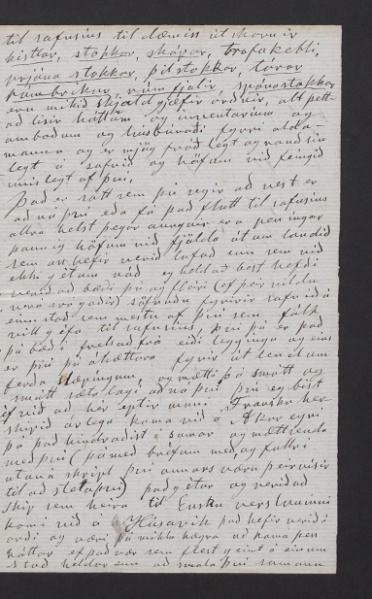 til safusins til dæmiss útskornir
kistlar, stokkar, skápar, trafakebli,
prjóna stokkar, pitstokkar, lárar
rúmbríkur, rúmfjalir, spónastokkar
eru mikið skjald gjæfir orðnir, alt þett-
að lísir háttum og inventarium og
ambodum og húsbunaði fyrri alda-
manna og er mjög fróðlegt og vandlin
legt á safnið og höfum við feingið
mislegt af þvi,
Það er rátt sem þú segir að vest er
að ná þvi eða fá það flutt til safusins
allra helst þegar aunguir eru peningar
þannig höfum við fjölda út um landið
sem oss hefir verið lofað enn sem við
ekki getum náð eg held að best hefði
verið að bæði þú og fleiri (ef þer vildu
vera svo góðir) söfnuðu fyrir safnið á
einn stað sem mestu af þvi sem fólk
vill gefa til safusins, þvi þá er það
þá bæði frelsað frá eiðileggingu og eins
er þvi þá óhættara fyrir útlendum
ferða slæpingum, og mætti þá smátt og
smátt sæta lagi að ná þvi, þvi eg bíst
við að hér eptir muni Franskt her-
skip árlega koma við á Akureyri
þó það hindraðist í sumar og mætti senda
með þvi (þá með brefum með og fullri
utaná skript þvi annars væru þeir vísir
til að stela þvi) það getur og verið að
skip sem heira til Ensku versluninni
komi við á Húsavik það hefir verið í
orði og væri þá mikla hægra að koma þeim
háttar ef það vær sem flest geimt á einum
stað heldur enn að smala þvi saman